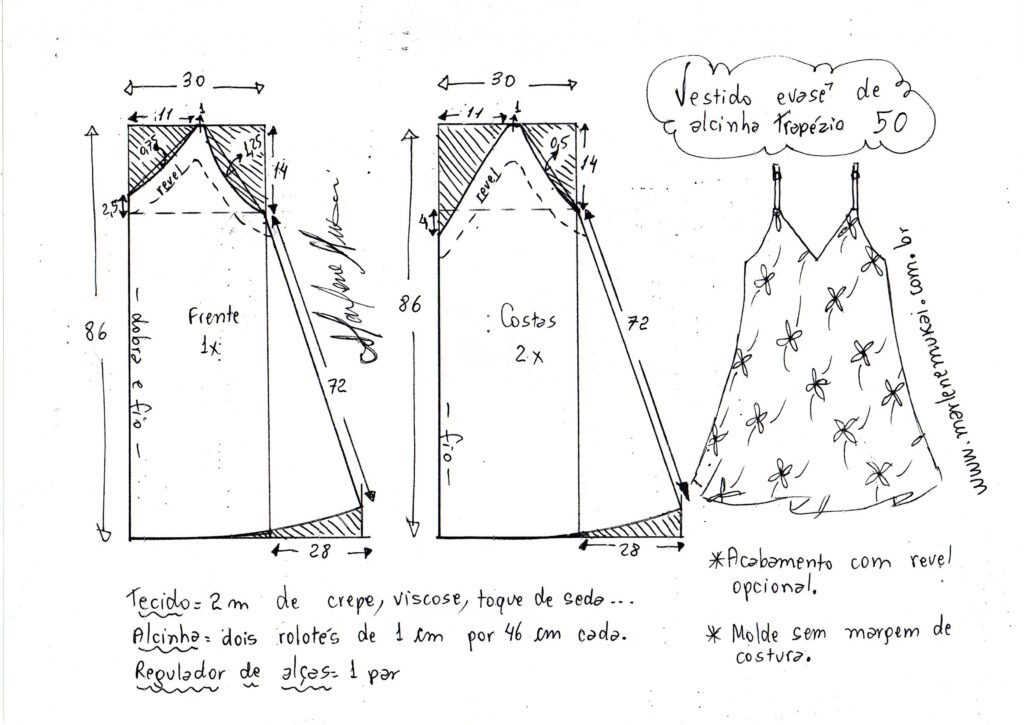 Vestido evasê de
alcinha trapézio 50
30
11
1
0,75
1,25
14
revel
2,5
86
Frente
1x
— dobra e fio —
72
28
30
11
1
0,5
14
revel
4
86
Costas
2x
— fio —
72
28
www.marlenemukai.com.br
*Acabamento com revel
opcional.
* Molde sem margem de
costura.
Tecido= 2 m de crepe, viscose, toque de seda...
Alcinha= dois rolotês de 1 cm por 46 cm cada.
Regulador de alças= 1 par
Marlene Mukai